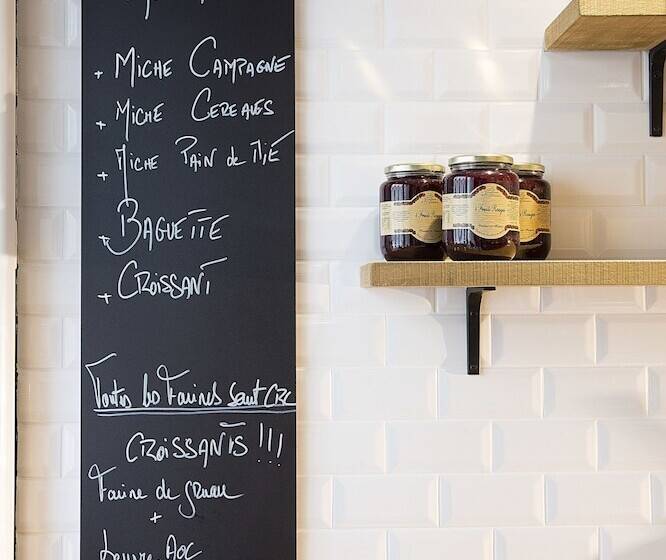 + MICHE CAMPAGNE
+ MICHE CEREALES
+ MICHE PAIN de MIE
+ BAGUETTE
+ CROISSANT
Toutes les Farines sont CRC
CROISSANTS !!!
Farine de gruau
+
Beurre AOC
Fruits Rouges